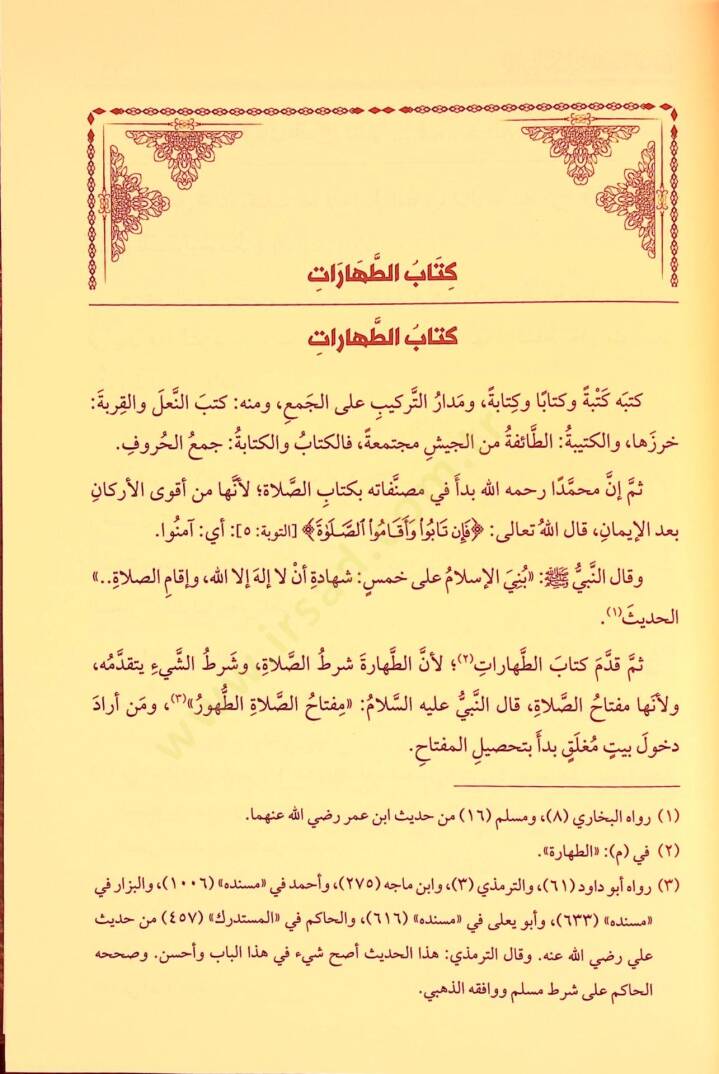 كِتَابُ الطَّهَارَاتِ
كتابُ الطَّهاراتِ
كتبَه كَتْبةً وكتابًا وكِتابةً، ومَدارُ التَّركيبِ على الجَمعِ، ومنه: كتبَ النَّعلَ والقِربةَ:
خرزَها، والكتيبةُ: الطَّائفةُ من الجيشِ مجتمعةً، فالكتابُ والكتابةُ: جمعُ الحُروفِ.
ثمَّ إنَّ محمَّدًا رحمه الله بدأَ في مصنَّفاته بكتابِ الصَّلاة؛ لأنَّها من أقوى الأركانِ
بعد الإيمانِ، قال اللهُ تعالى: ﴿فَإِن تَابُواْ وَأَقَامُواْ ٱلصَّلَوٰةَ﴾ [التوبة: ٥]: أي: آمنُوا.
وقال النَّبيُّ ﷺ: «بُنِيَ الإسلامُ على خمسٍ: شهادةِ أنْ لا إلهَ إلا الله، وإقامِ الصلاةِ..»
الحديثَ(١).
ثمَّ قدَّمَ كتابَ الطَّهاراتِ(٢)؛ لأنَّ الطَّهارةَ شرطُ الصَّلاةِ، وشَرطُ الشَّيءِ يتقدَّمُه،
ولأنَّها مفتاحُ الصَّلاةِ، قال النَّبيُّ عليه السَّلامُ: «مِفتاحُ الصَّلاةِ الطُّهورُ»(٣)، ومَن أرادَ
دخولَ بيتٍ مُغلَقٍ بدأَ بتحصيلِ المفتاحِ.
(١) رواه البخاري (٨)، ومسلم (١٦) من حديث ابن عمر رضي الله عنهما.
(٢) في (م): «الطهارة».
(٣) رواه أبو داود (٦١)، والترمذي (٣)، وابن ماجه (٢٧٥)، وأحمد في «مسنده» (١٠٠٦)، والبزار في
«مسنده» (٦٣٣)، وأبو يعلى في «مسنده» (٦١٦)، والحاكم في «المستدرك» (٤٥٧) من حديث
علي رضي الله عنه. وقال الترمذي: هذا الحديث أصح شيء في هذا الباب وأحسن. وصححه
الحاكم على شرط مسلم ووافقه الذهبي.